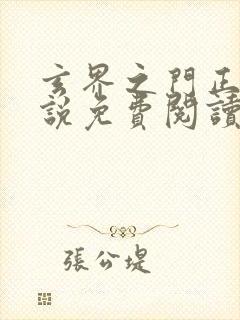 玄界之門正
說免費閱讀
張公堤